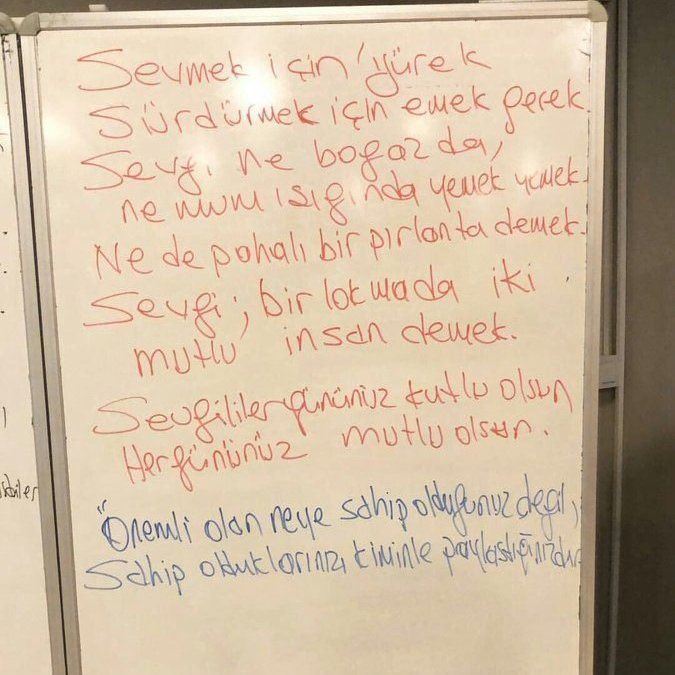 Sevmek için yürek
Sürdürmek için emek gerek.
Sevgi ne boğazda,
ne mum ışığında yemek yemek.
Ne de pahalı bir pırlanta demek.
Sevgi; bir lokmada iki
mutlu insan demek.
Sevgililer gününüz kutlu olsun
Hergününüz mutlu olsun.
"Önemli olan neye sahip olduğunuz değil,
Sahip olduklarınızı kiminle paylaştığınızdır